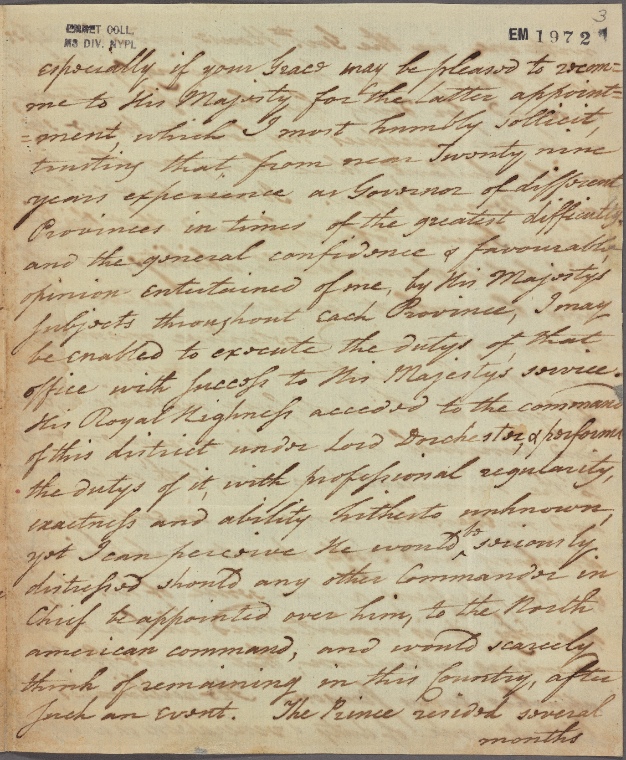 3
EMMET COLL.
MS DIV. NYPL
EM 1972
especially if your Grace may be pleased to recom=
me to His Majesty for the Latter appoint=
=ment, which I most humbly sollicit,
trusting that, from near Twenty nine
years experience as Governor of different
Provinces in times of the greatest difficulty
and the general confidence & favourable
opinion entertained of me, by His Majestys
subjects throughout each Province, I may
be enabled to execute the dutys of that
office with success to His Majestys service.
His Royal Highness acceded to the command
of this district under Lord Dorchester, & performs
the dutys of it, with professional regularity,
exactness and ability hitherto unknown,
yet I can perceive He would be seriously
distressed should any other Commander in
Chief be appointed over him, to the North
american command, and would scarcely
think of remaining in this Country, after
such an event. The Prince resided several
months